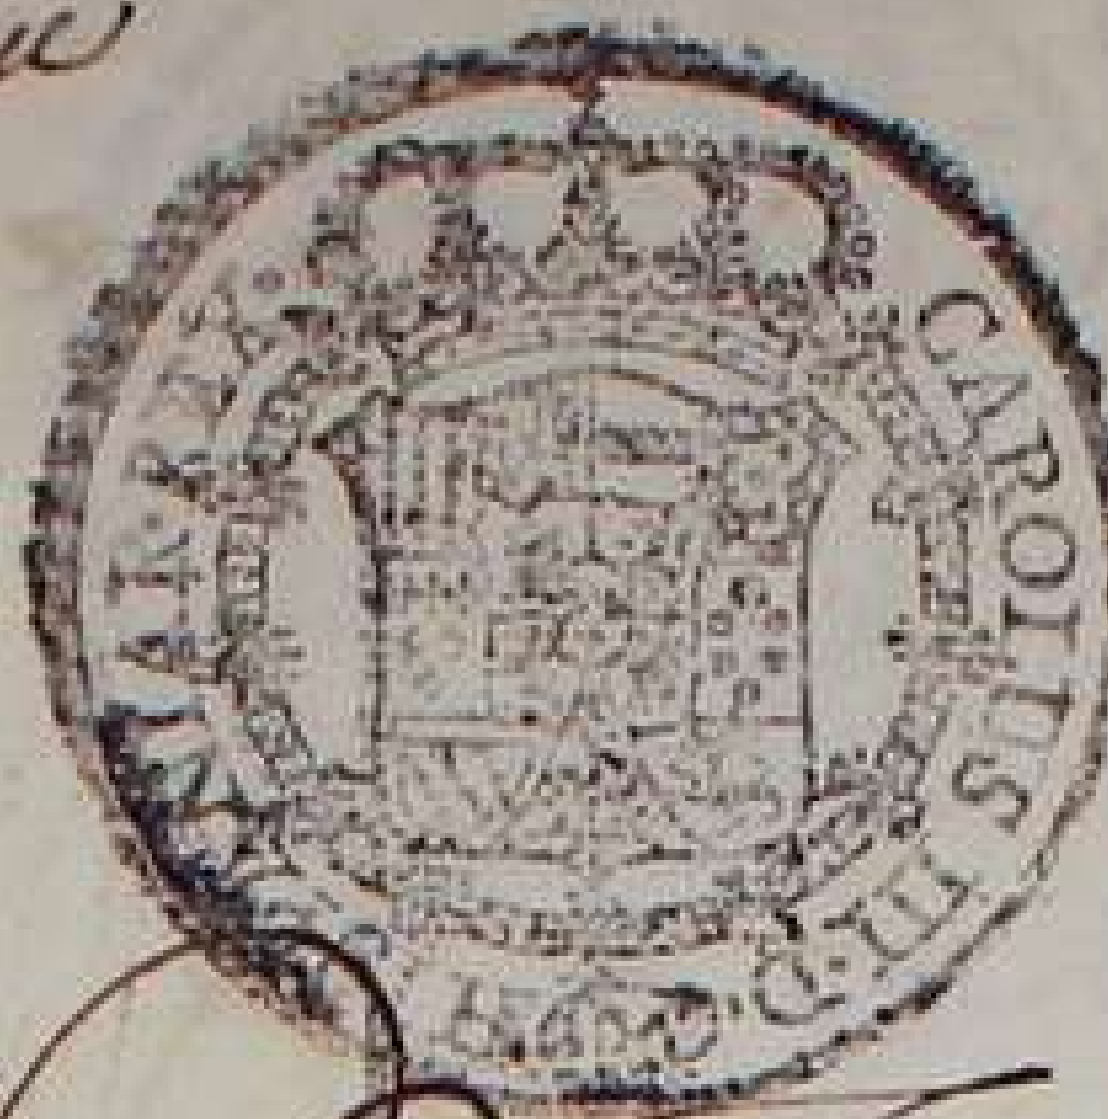 CAROLUS III D. G.
HISPANIAR. REX